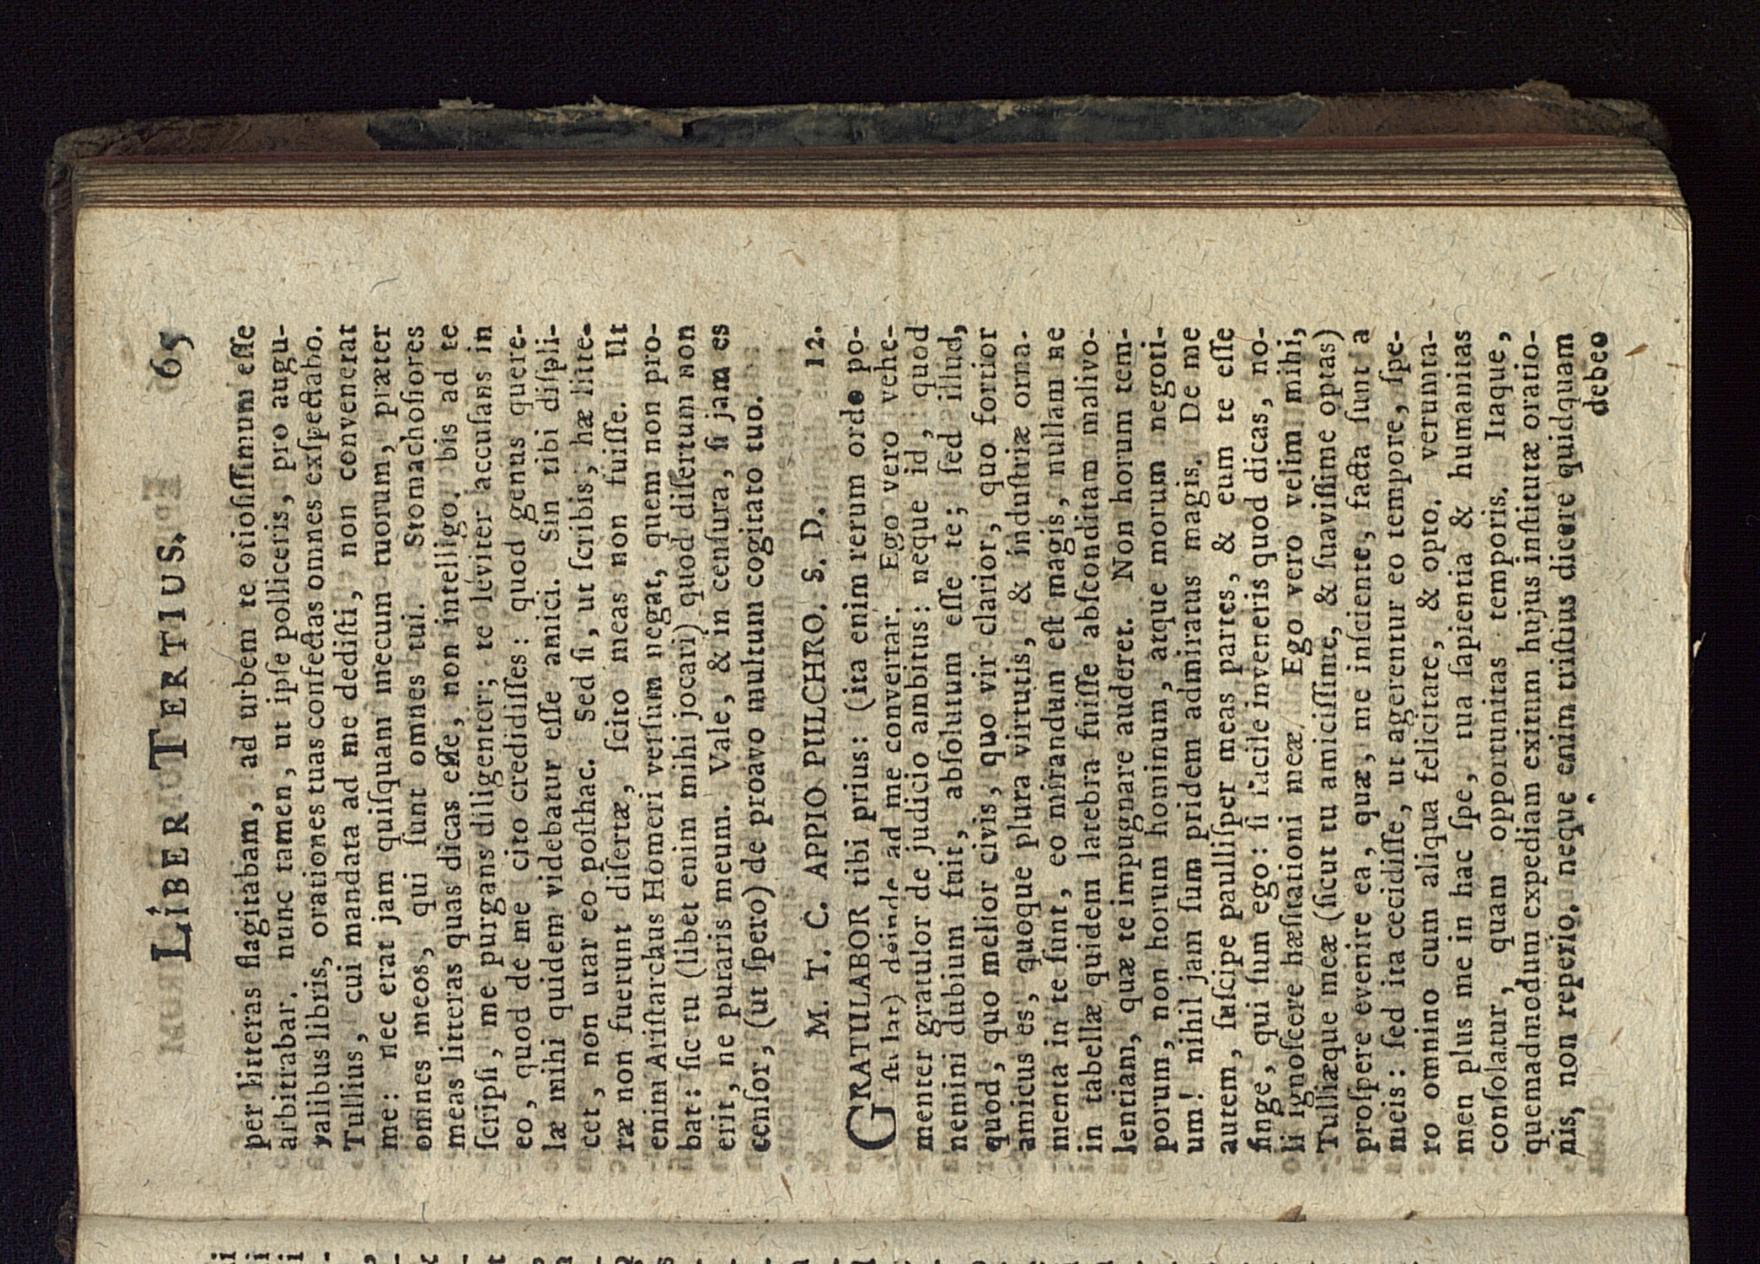 LIBER TERTIUS. 65
per litteras flagitabam, ad urbem te otiosiſſimum eſſe
arbitrabar. nunc tamen, ut ipſe polliceris, pro augu-
ralibus libris, orationes tuas confectas omnes exſpectabo.
Tullius, cui mandata ad me dediſti, non convenerat
me: nec erat jam quiſquam mecum tuorum, præter
omnes meos, qui ſunt omnes tui. Stomachoſiores
meas litteras quas dicas eſſe, non intelligo. bis ad te
ſcripſi, me purgans diligenter; te léviter accuſans in
eo, quod de me cito credidiſſes: quod genus quere-
læ mihi quidem videbatur eſſe amici. Sin tibi diſpli-
cet, non utar eo poſthac. Sed ſi, ut ſcribis, hæ litte-
ræ non fuerunt diſertæ, ſcito meas non fuiſſe. Ut
enim Ariſtarchus Homeri verſum negat, quem non pro-
bat: ſic tu (libet enim mihi jocari) quod diſertum non
erit, ne putaris meum. Vale, & in cenſura, ſi jam es
cenſor, (ut ſpero) de proavo multum cogitato tuo.
M. T. C. APPIO PULCHRO. S. D. 12.
GRATULABOR tibi prius: (ita enim rerum ordo po-
ſtulat) deinde ad me convertar. Ego vero vehe-
menter gratulor de judicio ambitus: neque id, quod
nemini dubium fuit, abſolutum eſſe te; ſed illud,
quod, quo melior civis, quo vir clarior, quo fortior
amicus es, quoque plura virtutis, & induſtriæ orna-
menta in te ſunt, eo mirandum eſt magis, nullam ne
in tabellæ quidem latebra fuiſſe abſconditam malivo-
lentiam, quæ te impugnare auderet. Non horum tem-
porum, non horum hominum, atque morum negoti-
um! nihil jam ſum pridem admiratus magis. De me
autem, ſuſcipe paulliſper meas partes, & eum te eſſe
finge, qui ſum ego: ſi facile inveneris quod dicas, no-
li ignoſcere hæſitationi meæ. Ego vero velim mihi,
Tulliæque meæ (ſicut tu amiciſſime, & ſuaviſſime optas)
proſpere evenire ea, quæ, me inſciente, facta ſunt a
meis: ſed ita cecidiſſe, ut agerentur eo tempore, ſpe-
ro omnino cum aliqua felicitate, & opto. verumta-
men plus me in hac ſpe, tua ſapientia & humanitas
conſolatur, quam opportunitas temporis. Itaque,
quemadmodum expediam exitum hujus inſtitutæ oratio-
nis, non reperio. neque enim triſtius dicere quidquam
debeo